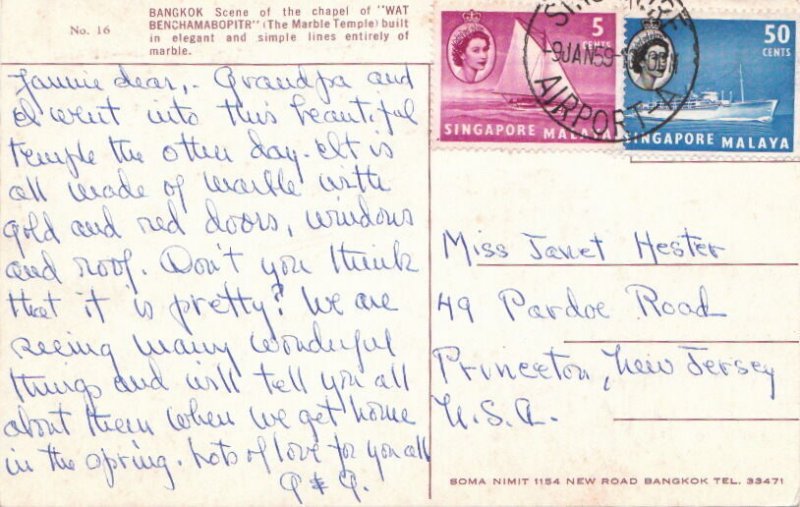 No. 16
BANGKOK Scene of the chapel of "WAT
BENCHAMABOPITR" (The Marble Temple) built
in elegant and simple lines entirely of
marble.
Jannie dear, - Grandpa and
I went into this beautiful
temple the other day. It is
all made of marble with
gold and red doors, windows
and roof. Don't you think
that it is pretty? We are
seeing many wonderful
things and will tell you all
about them when we get home
in the spring. Lots of love for you all
G & G.
5
CENTS
SINGAPORE MALAYA
50
CENTS
SINGAPORE MALAYA
-9JAN59-
AIRPORT
Miss Janet Hester
49 Pardoe Road
Princeton, New Jersey
U.S.A.
SOMA NIMIT 1154 NEW ROAD BANGKOK TEL. 33471